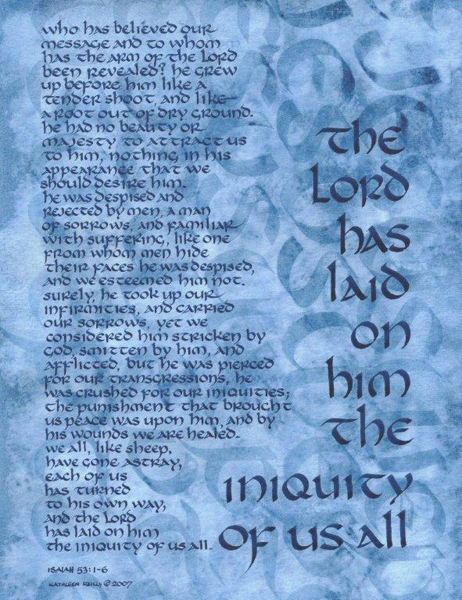 who has believed our
message and to whom
has the arm of the Lord
been revealed? he grew
up before him like a
tender shoot, and like
a root out of dry ground.
he had no beauty or
majesty to attract us
to him, nothing in his
appearance that we
should desire him.
he was despised and
rejected by men, a man
of sorrows, and familiar
with suffering, like one
from whom men hide
their faces he was despised,
and we esteemed him not.
surely, he took up our
infirmities, and carried
our sorrows, yet we
considered him stricken by
God, smitten by him, and
afflicted, but he was pierced
for our transgressions, he
was crushed for our iniquities;
the punishment that brought
us peace was upon him, and by
his wounds we are healed.
we all, like sheep,
have gone astray,
each of us
has turned
to his own way,
and the Lord
has laid on him
the iniquity of us all.
ISAIAH 53:1-6
KATHLEEN REILLY © 2007
the
Lord
has
laid
on
him
the
iniquity
of us all